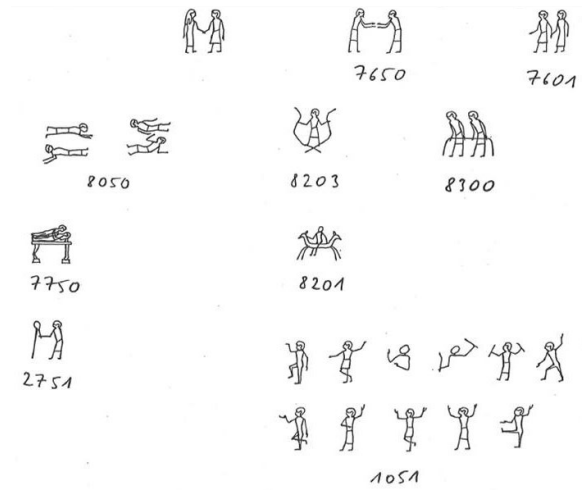 7650 7601
8050 8203 8300
7750 8201
2751
1051